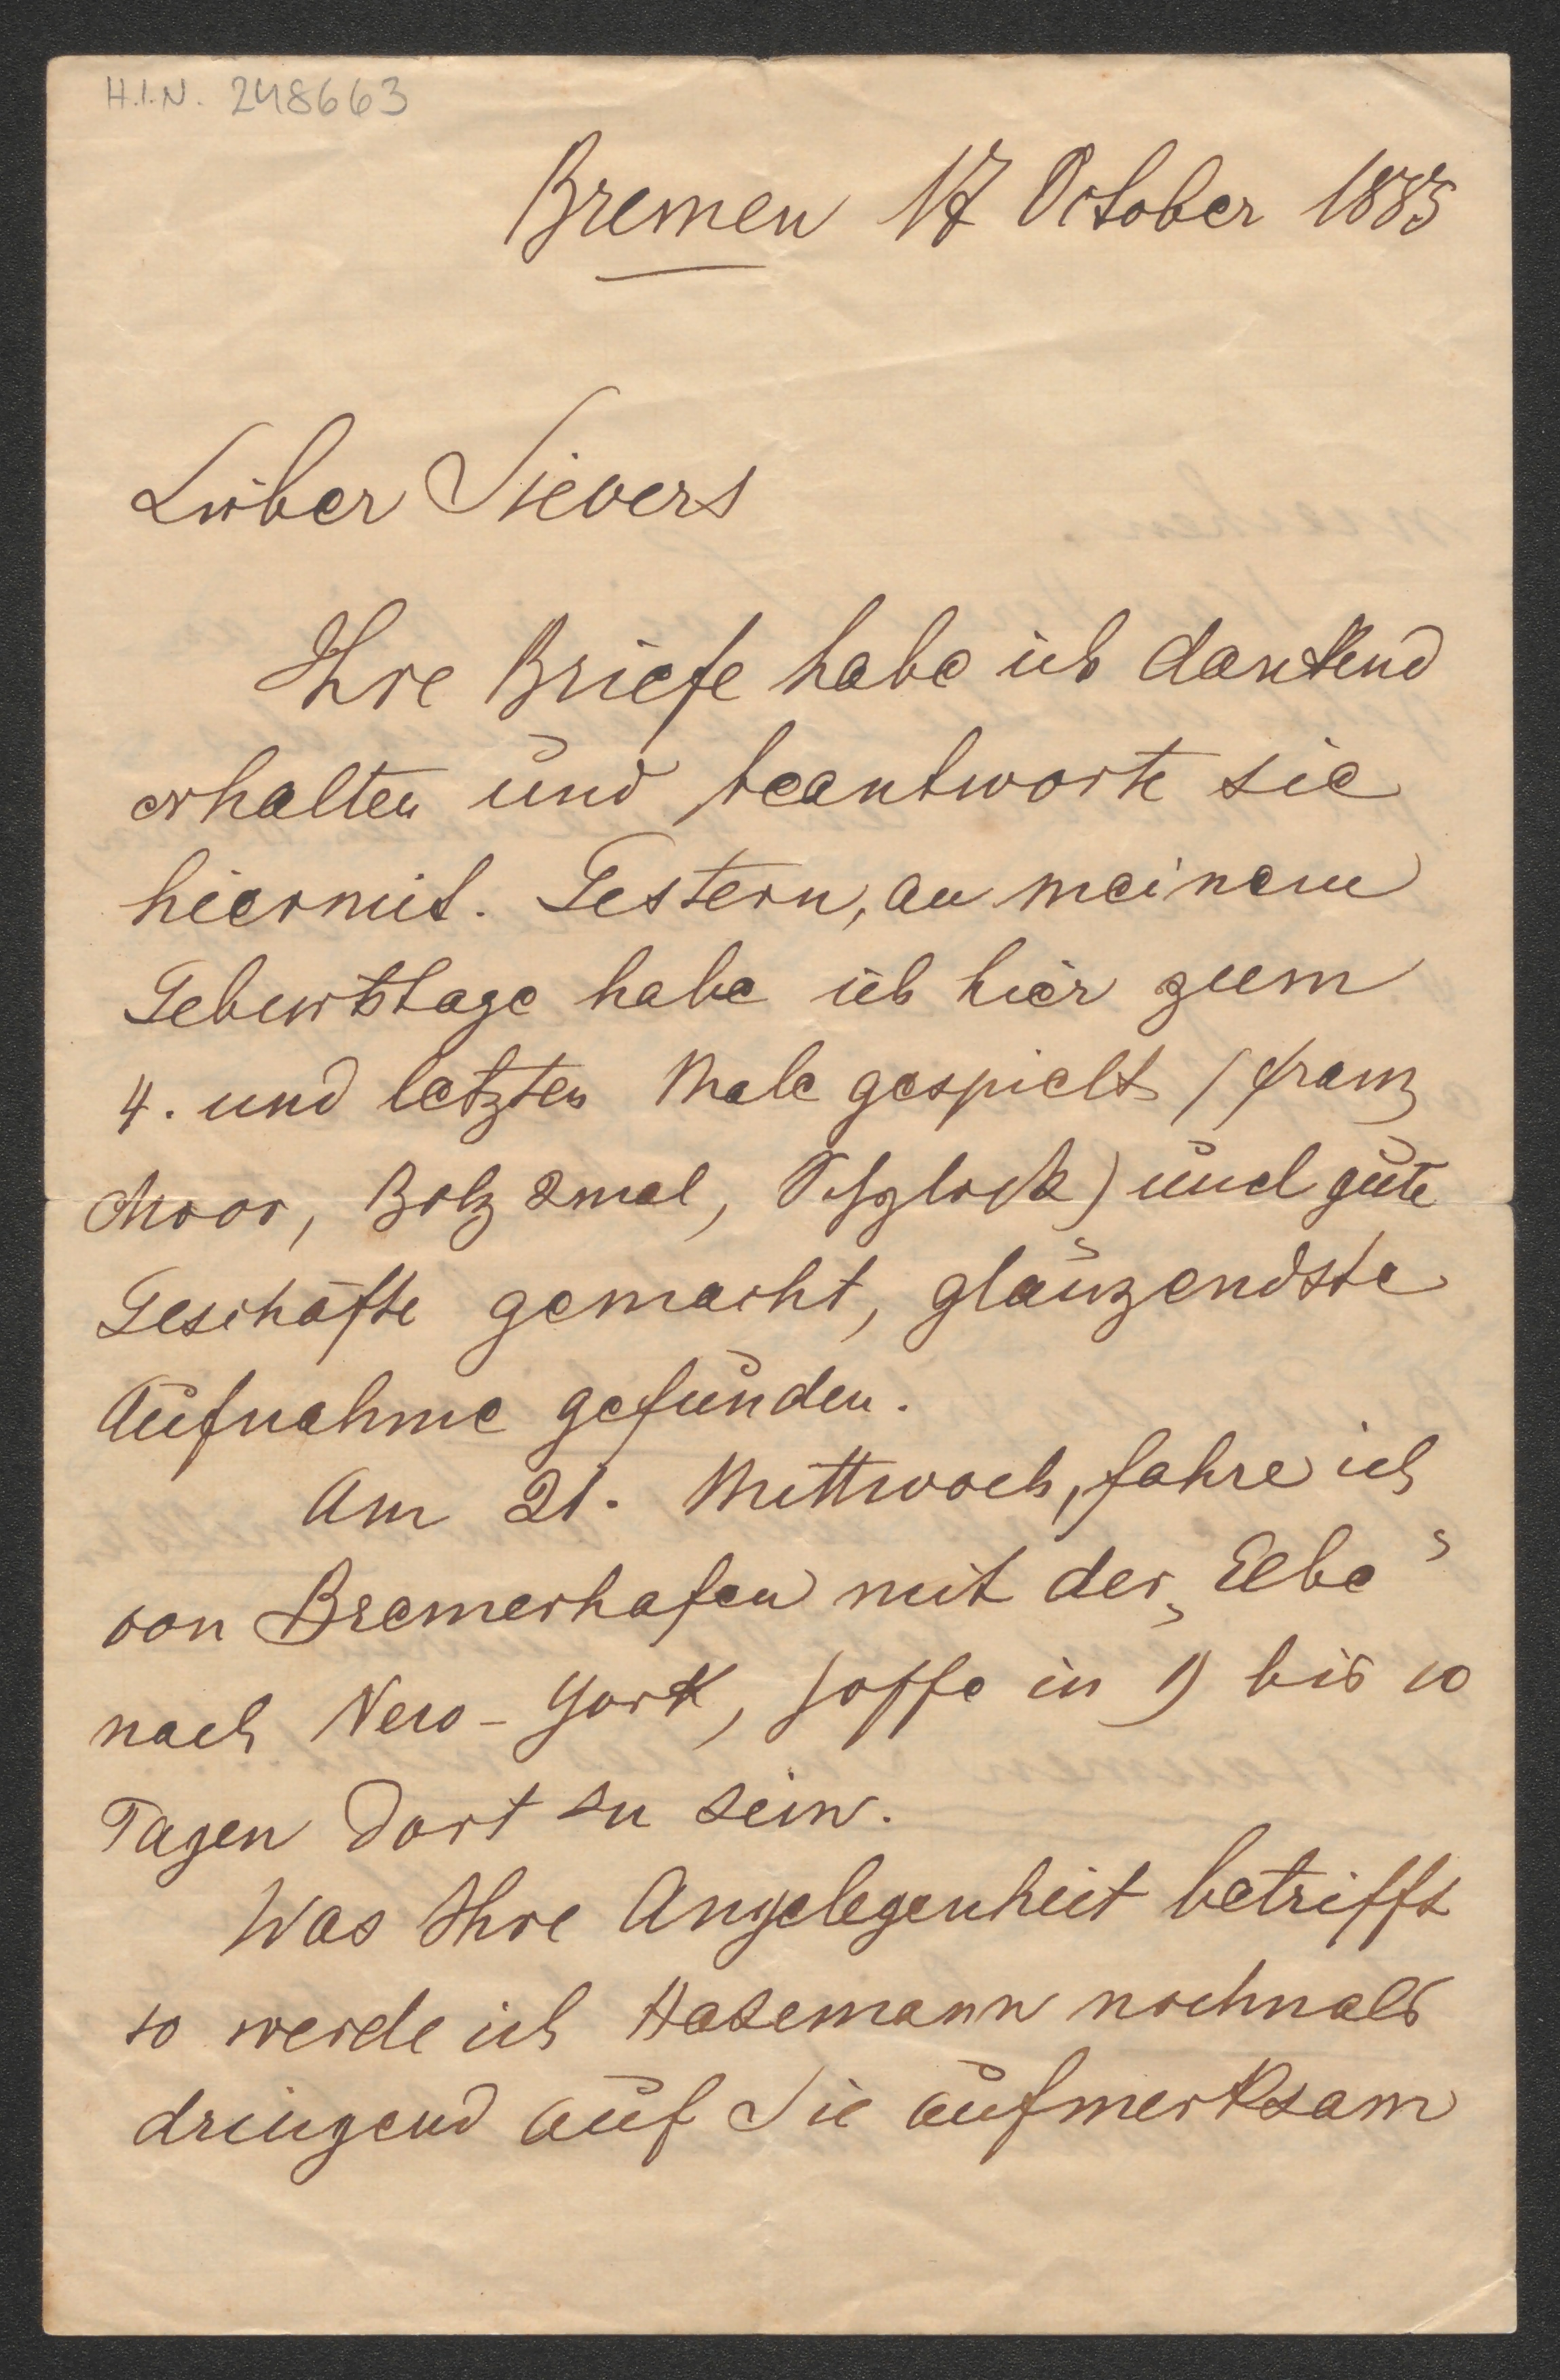 H.I.N. 248663
Bremen 17 October 1885
Lieber Sievers
Ihre Briefe habe ich dankend
erhalten und beantworte sie
hiermit. Gestern, an meinem
Geburtstage habe ich hier zum
4. und letzten Male gespielt (Franz
Moor, Bolz 2mal, Schylock) und gute
Geschäfte gemacht, glänzendste
Aufnahme gefunden.
Am 21. Mittwoch, fahre ich
von Bremerhafen mit der „Elbe“
nach New-York, hoffe in 9 bis 10
Tagen dort zu sein.
Was Ihre Angelegenheit betrifft
so werde ich Hasemann nochmals
dringend auf Sie aufmerksam